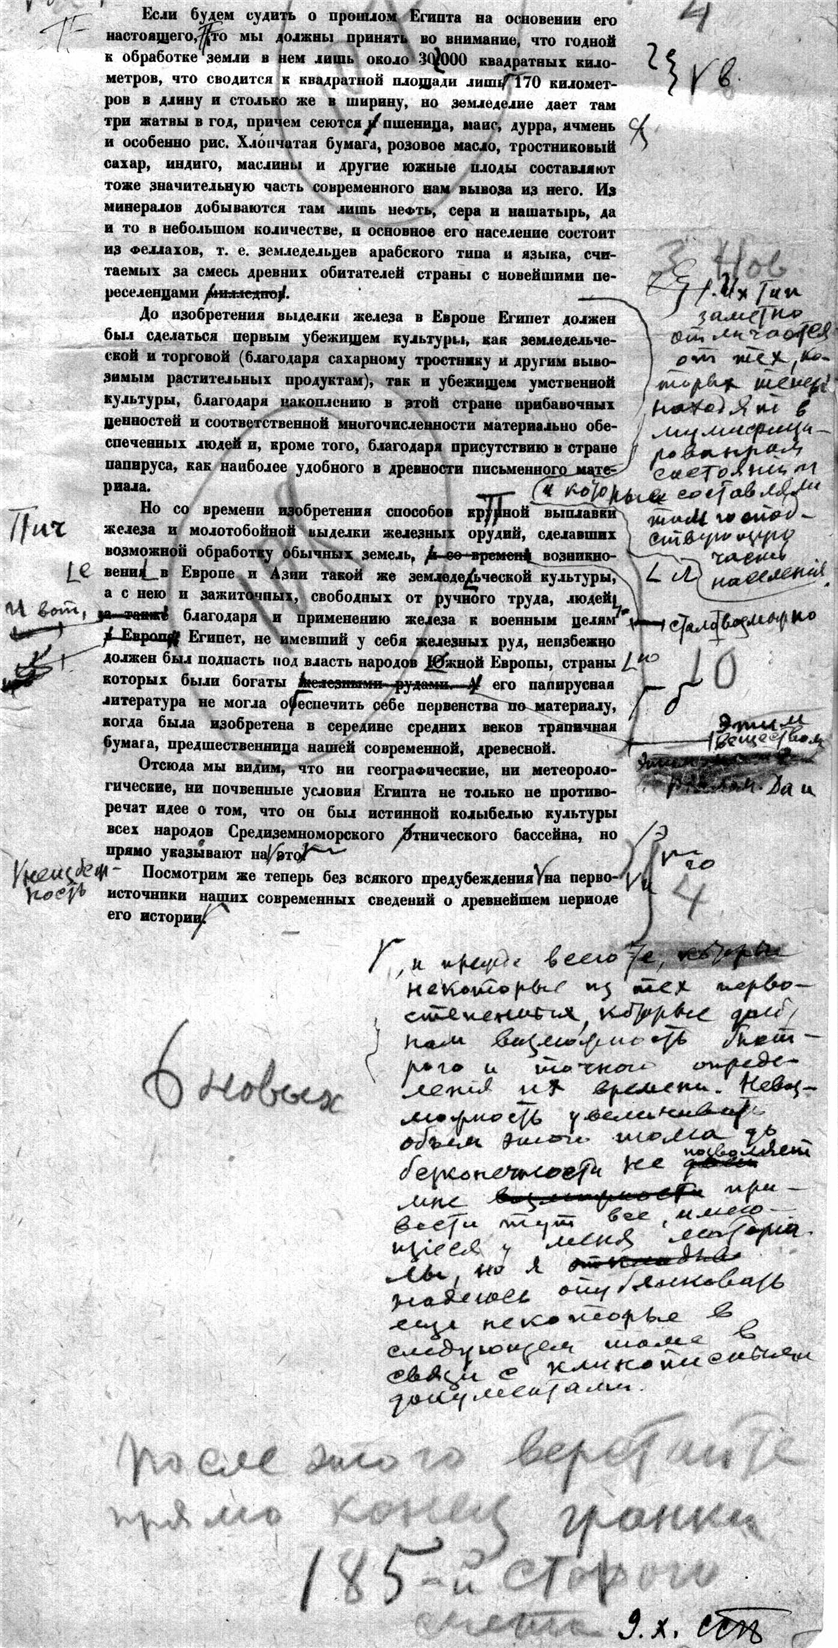 4
Если будем судить о прошлом Египта на основении его
настоящего, то мы должны принять во внимание, что годной
к обработке земли в нем лишь около 30000 квадратных кило-
метров, что сводится к квадратной площади лишь 170 километ-
ров в длину и столько же в ширину, но земледелие дает там
три жатвы в год, причем сеются и пшеница, маис, дурра, ячмень
и особенно рис. Хлопчатая бумага, розовое масло, тростниковый
сахар, индиго, маслины и другие южные плоды составляют
тоже значительную часть современного нам вывоза из него. Из
минералов добываются там лишь нефть, сера и нашатырь, да
и то в небольшом количестве, и основное его население состоит
из феллахов, т. е. земледельцев арабского типа и языка, счи-
таемых за смесь древних обитателей страны с новейшими пе-
реселенцами
До изобретения выделки железа в Европе Египет должен
был сделаться первым убежищем культуры, как земледельче-
ской и торговой (благодаря сахарному тростнику и другим выво-
зимым растительных продуктам), так и убежищем умственной
культуры, благодаря накоплению в этой стране прибавочных
ценностей и соответственной многочисленности материально обе-
спеченных людей и, кроме того, благодаря присутствию в стране
папируса, как наиболее удобного в древности письменного мате-
риала.
Но со времени изобретения способов крупной выплавки
железа и молотобойной выделки железных орудий, сделавших
возможной обработку обычных земель, и со времени возникно-
вения в Европе и Азии такой же земледельческой культуры,
а с нею и зажиточных, свободных от ручного труда, людей,
а также благодаря и применению железа к военным целям
в Европе Египет, не имевший у себя железных руд, неизбежно
должен был подпасть под власть народов Южной Европы, страны
которых были богаты железными рудами. И его папирусная
литература не могла обеспечить себе первенства по материалу,
когда была изобретена в середине средних веков тряпичная
бумага, предшественница нашей современной, древесной.
Отсюда мы видим, что ни географические, ни метеороло-
гические, ни почвенные условия Египта не только не противо-
речат идее о том, что он был истинной колыбелью культуры
всех народов Средиземноморского этнического бассейна, но
прямо указывают на это
Посмотрим же теперь без всякого предубеждения на перво-
источники наших современных сведений о древнейшем периоде
его истории.
3 Нов.
Их тип
заметно
отличается
от тех, ко-
торых теперь
находят в
мумифици-
рованном
состоянии
и которые составляли
там господ-
ствующую
часть
населения.
И вот,
стало возможно
10
этим
веществом
неизбеж-
ность
4
, и прежде всего
некоторые из тех перво-
степенных, которые дают
нам возможность быст-
рого и точного опреде-
ления их времени. Невоз-
можность увеличивать
объем этого тома до
бесконечности не позволяет
мне при-
вести тут все, имею-
щиеся у меня материа-
лы, но я
надеюсь опубликовать
еще некоторые в
следующем томе в
связи с клинописными
документами.
6 новых
После этого верстайте
прямо конец гранки
185-й старого
счета